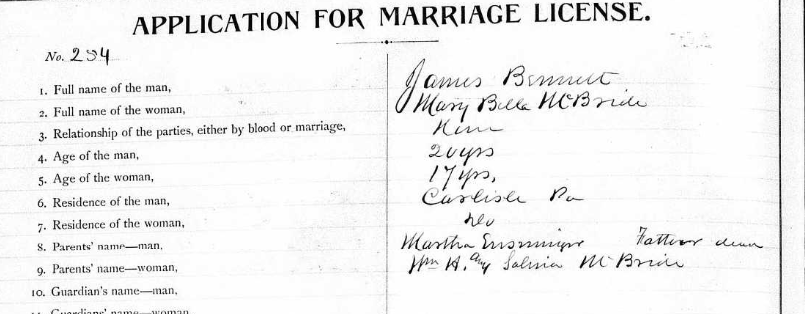 APPLICATION FOR MARRIAGE LICENSE.
No. 294
1. Full name of the man, James Bennett
2. Full name of the woman, Mary Bella McBride
3. Relationship of the parties, either by blood or marriage,
4. Age of the man, 20 yrs
5. Age of the woman, 17 yrs,
6. Residence of the man, Carlisle Pa
7. Residence of the woman, Do
8. Parents' name—man, Martha Ensminger Father
9. Parents' name—woman, Wm H. McBride
10. Guardian's name—man,
Guardians' name—woman